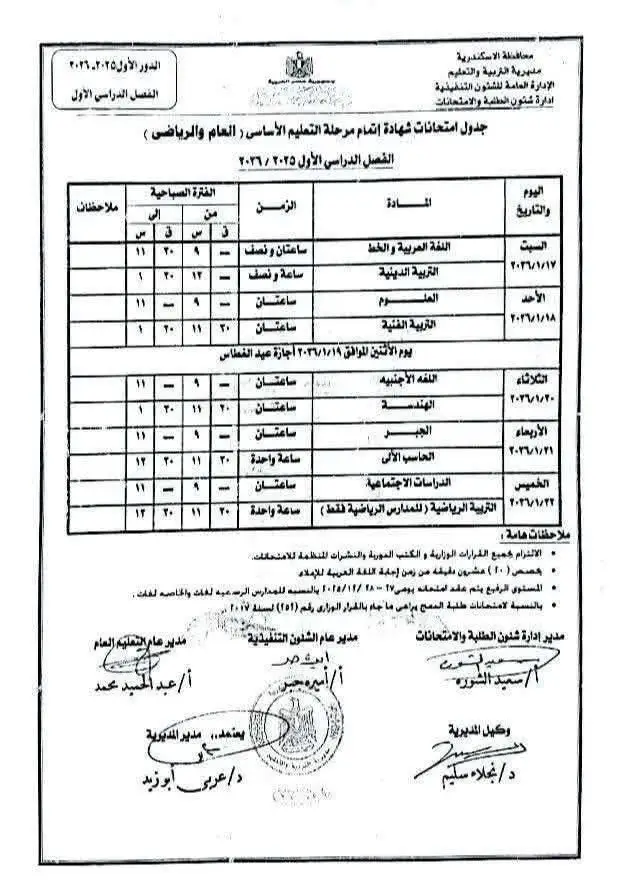 محافظة الاسكندرية
مديرية التربية والتعليم
الإدارة العامة للشئون التنفيذية
إدارة شئون الطلبة والامتحانات
الدور الأول ٢٠٢٥ـ ٢٠٢٦
الفصل الدراسي الأول
جدول امتحانات شهادة إتمام مرحلة التعليم الأساسى ( العام والرياضى )
الفصل الدراسى الأول ٢٠٢٥ / ٢٠٢٦
اليوم والتاريخ المادة الزمن الفترة الصباحية ملاحظات
من إلى
ق س ق س
السبت ٢٠٢٦/١/١٧ اللغة العربية والخط ساعتان ونصف — ٩ ٣٠ ١١
التربية الدينية ساعة ونصف — ١٢ ٣٠ ١
الأحد ٢٠٢٦/١/١٨ العلوم ساعتان — ٩ — ١١
التربية الفنية ساعتان ٣٠ ١١ ٣٠ ١
يوم الأثنين الموافق ٢٠٢٦/١/١٩ أجازة عيد الغطاس
الثلاثاء ٢٠٢٦/١/٢٠ اللغه الأجنبيه ساعتان — ٩ — ١١
الهندسة ساعتان ٣٠ ١١ ٣٠ ١
الأربعاء ٢٠٢٦/١/٢١ الجبر ساعتان — ٩ — ١١
الحاسب الألى ساعة واحدة ٣٠ ١١ ٣٠ ١٢
الخميس ٢٠٢٦/١/٢٢ الدراسات الاجتماعية ساعتان — ٩ — ١١
التربية الرياضية ( للمدارس الرياضية فقط ) ساعة واحدة ٣٠ ١١ ٣٠ ١٢
ملاحظات هامة :
• الالتزام بجميع القرارات الوزارية و الكتب الدورية والنشرات المنظمة للامتحانات.
• يخصص (٢٠) عشرون دقيقه من زمن إجابة اللغة العربية للإملاء
• المستوى الرفيع يتم عقد امتحانه يومى ٢٧ – ٢٨ /٢٠٢٥/١٢ بالنسبه للمدارس الرسميه لغات والخاصه لغات .
• بالنسبة لامتحانات طلبة الدمج يراعى ما جاء بالقرار الوزارى رقم (٢٥٢) لسنة ٢٠١٧
مدير إدارة شئون الطلبة والامتحانات
أ/ سعيد الشوره
مدير عام الشئون التنفيذية
أ/ أميره
مدير عام التعليم العام
أ/ عبد الحميد محمد
وكيل المديرية
د/ نجلاء سليم
يعتمد،، مدير المديرية
د/ عربى أبوزيد